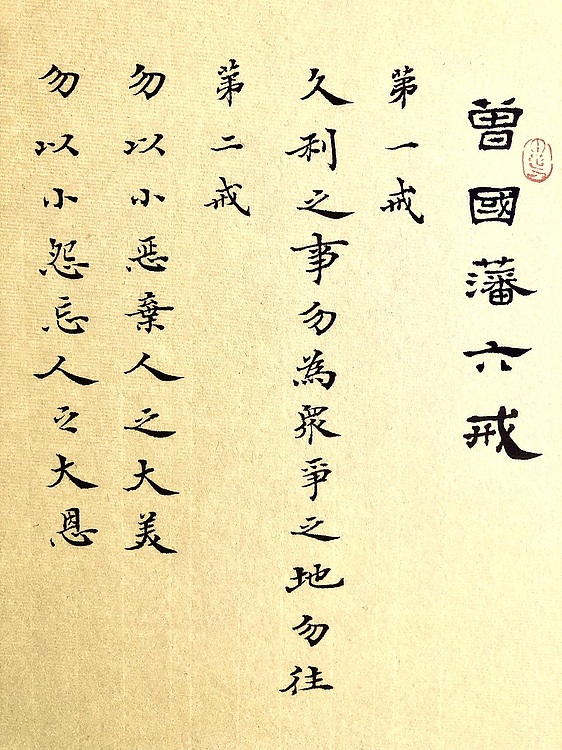 曾國藩六戒
第一戒
久利之事勿為眾爭之地勿往
第二戒
勿以小惡棄人之大美
勿以小怨忘人之大恩